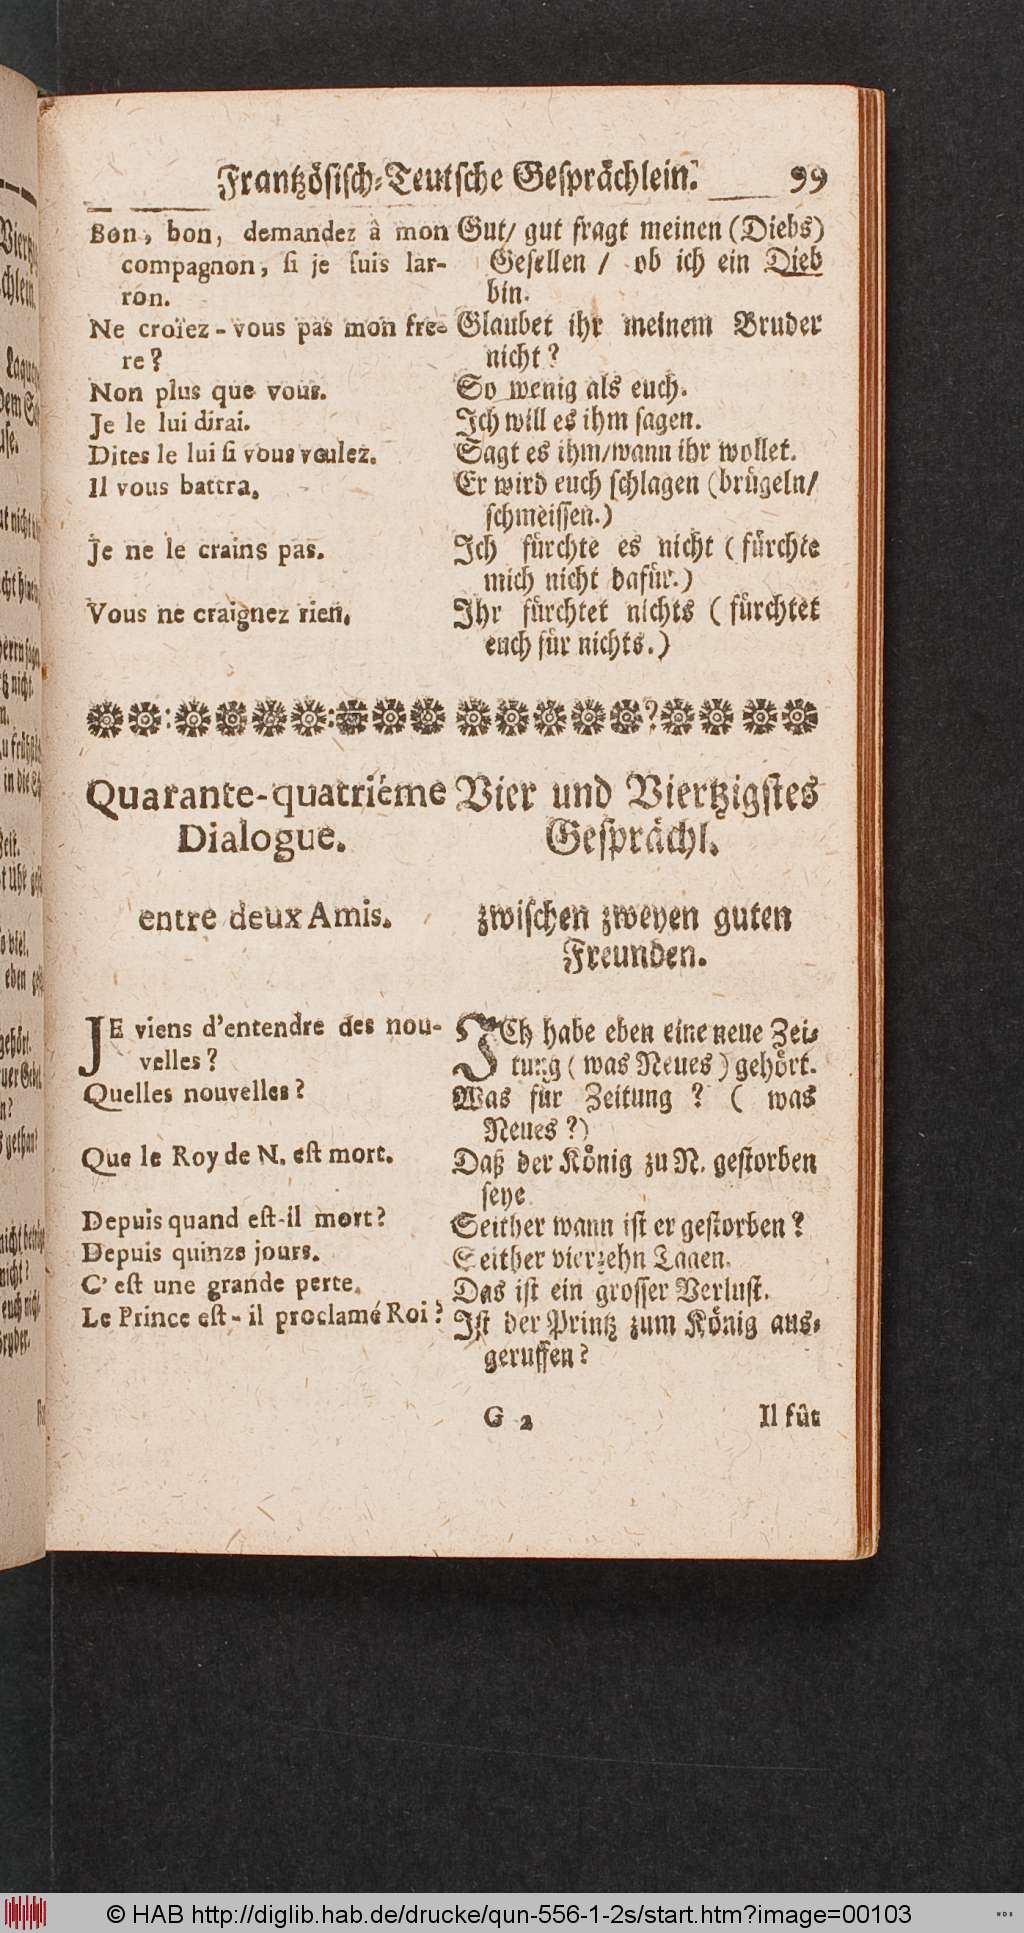 Frantzösisch-Teutsche Gesprächlein. 99
Bon, bon, demandez â mon
compagnon, ſi je ſuis lar-
ron.
Ne croïez-vous pas mon fre-
re?
Non plus que vous.
Je le lui dirai.
Dites le lui ſi vous voulez.
Il vous battra.
Je ne le crains pas.
Vous ne craignez rien.
Gut/ gut fragt meinen (Diebs)
Geſellen / ob ich ein Dieb
bin.
Glaubet ihr meinem Bruder
nicht?
So wenig als euch.
Ich will es ihm ſagen.
Sagt es ihm/wann ihr wollet.
Er wird euch ſchlagen (brügeln/
ſchmeiſſen.)
Ich fürchte es nicht ( fürchte
mich nicht dafür.)
Ihr fürchtet nichts ( fürchtet
euch für nichts.)
Quarante-quatriéme
Dialogue.
entre deux Amis.
Vier und Viertzigſtes
Geſprächl.
zwiſchen zweyen guten
Freunden.
JE viens d'entendre des nou-
velles?
Quelles nouvelles?
Que le Roy de N. eſt mort.
Depuis quand eſt-il mort?
Depuis quinze jours.
C'eſt une grande perte.
Le Prince eſt-il proclamé Roi?
ICh habe eben eine neue Zei-
tung ( was Neues ) gehört.
Was für Zeitung ? ( was
Neues ?)
Daß der König zu N. geſtorben
ſeye
Seither wann iſt er geſtorben?
Seither vierzehn Tagen.
Das iſt ein groſſer Verluſt.
Iſt der Printz zum König aus-
geruffen?
G 2 Il fût
© HAB http://diglib.hab.de/drucke/qun-556-1-2s/start.htm?image=00103